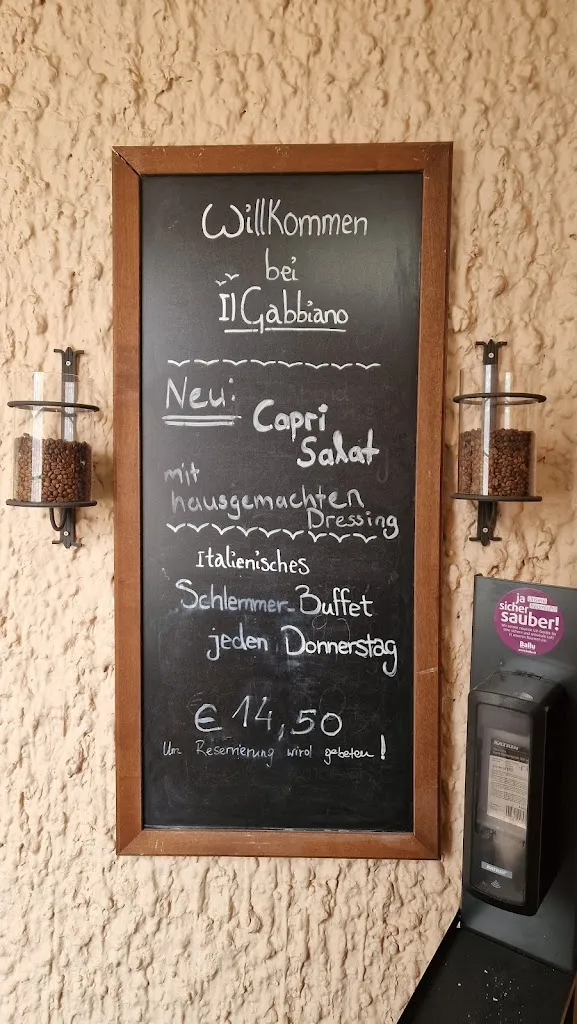 Willkommen
bei
Il Gabbiano
Neu:
Capri
Salat
mit
hausgemachten
Dressing
Italienisches
Schlemmer-Buffet
jeden Donnerstag
€ 14,50
Um Reservierung wird gebeten!
ja
sicher
sauber!
KATRIN
KATRIN